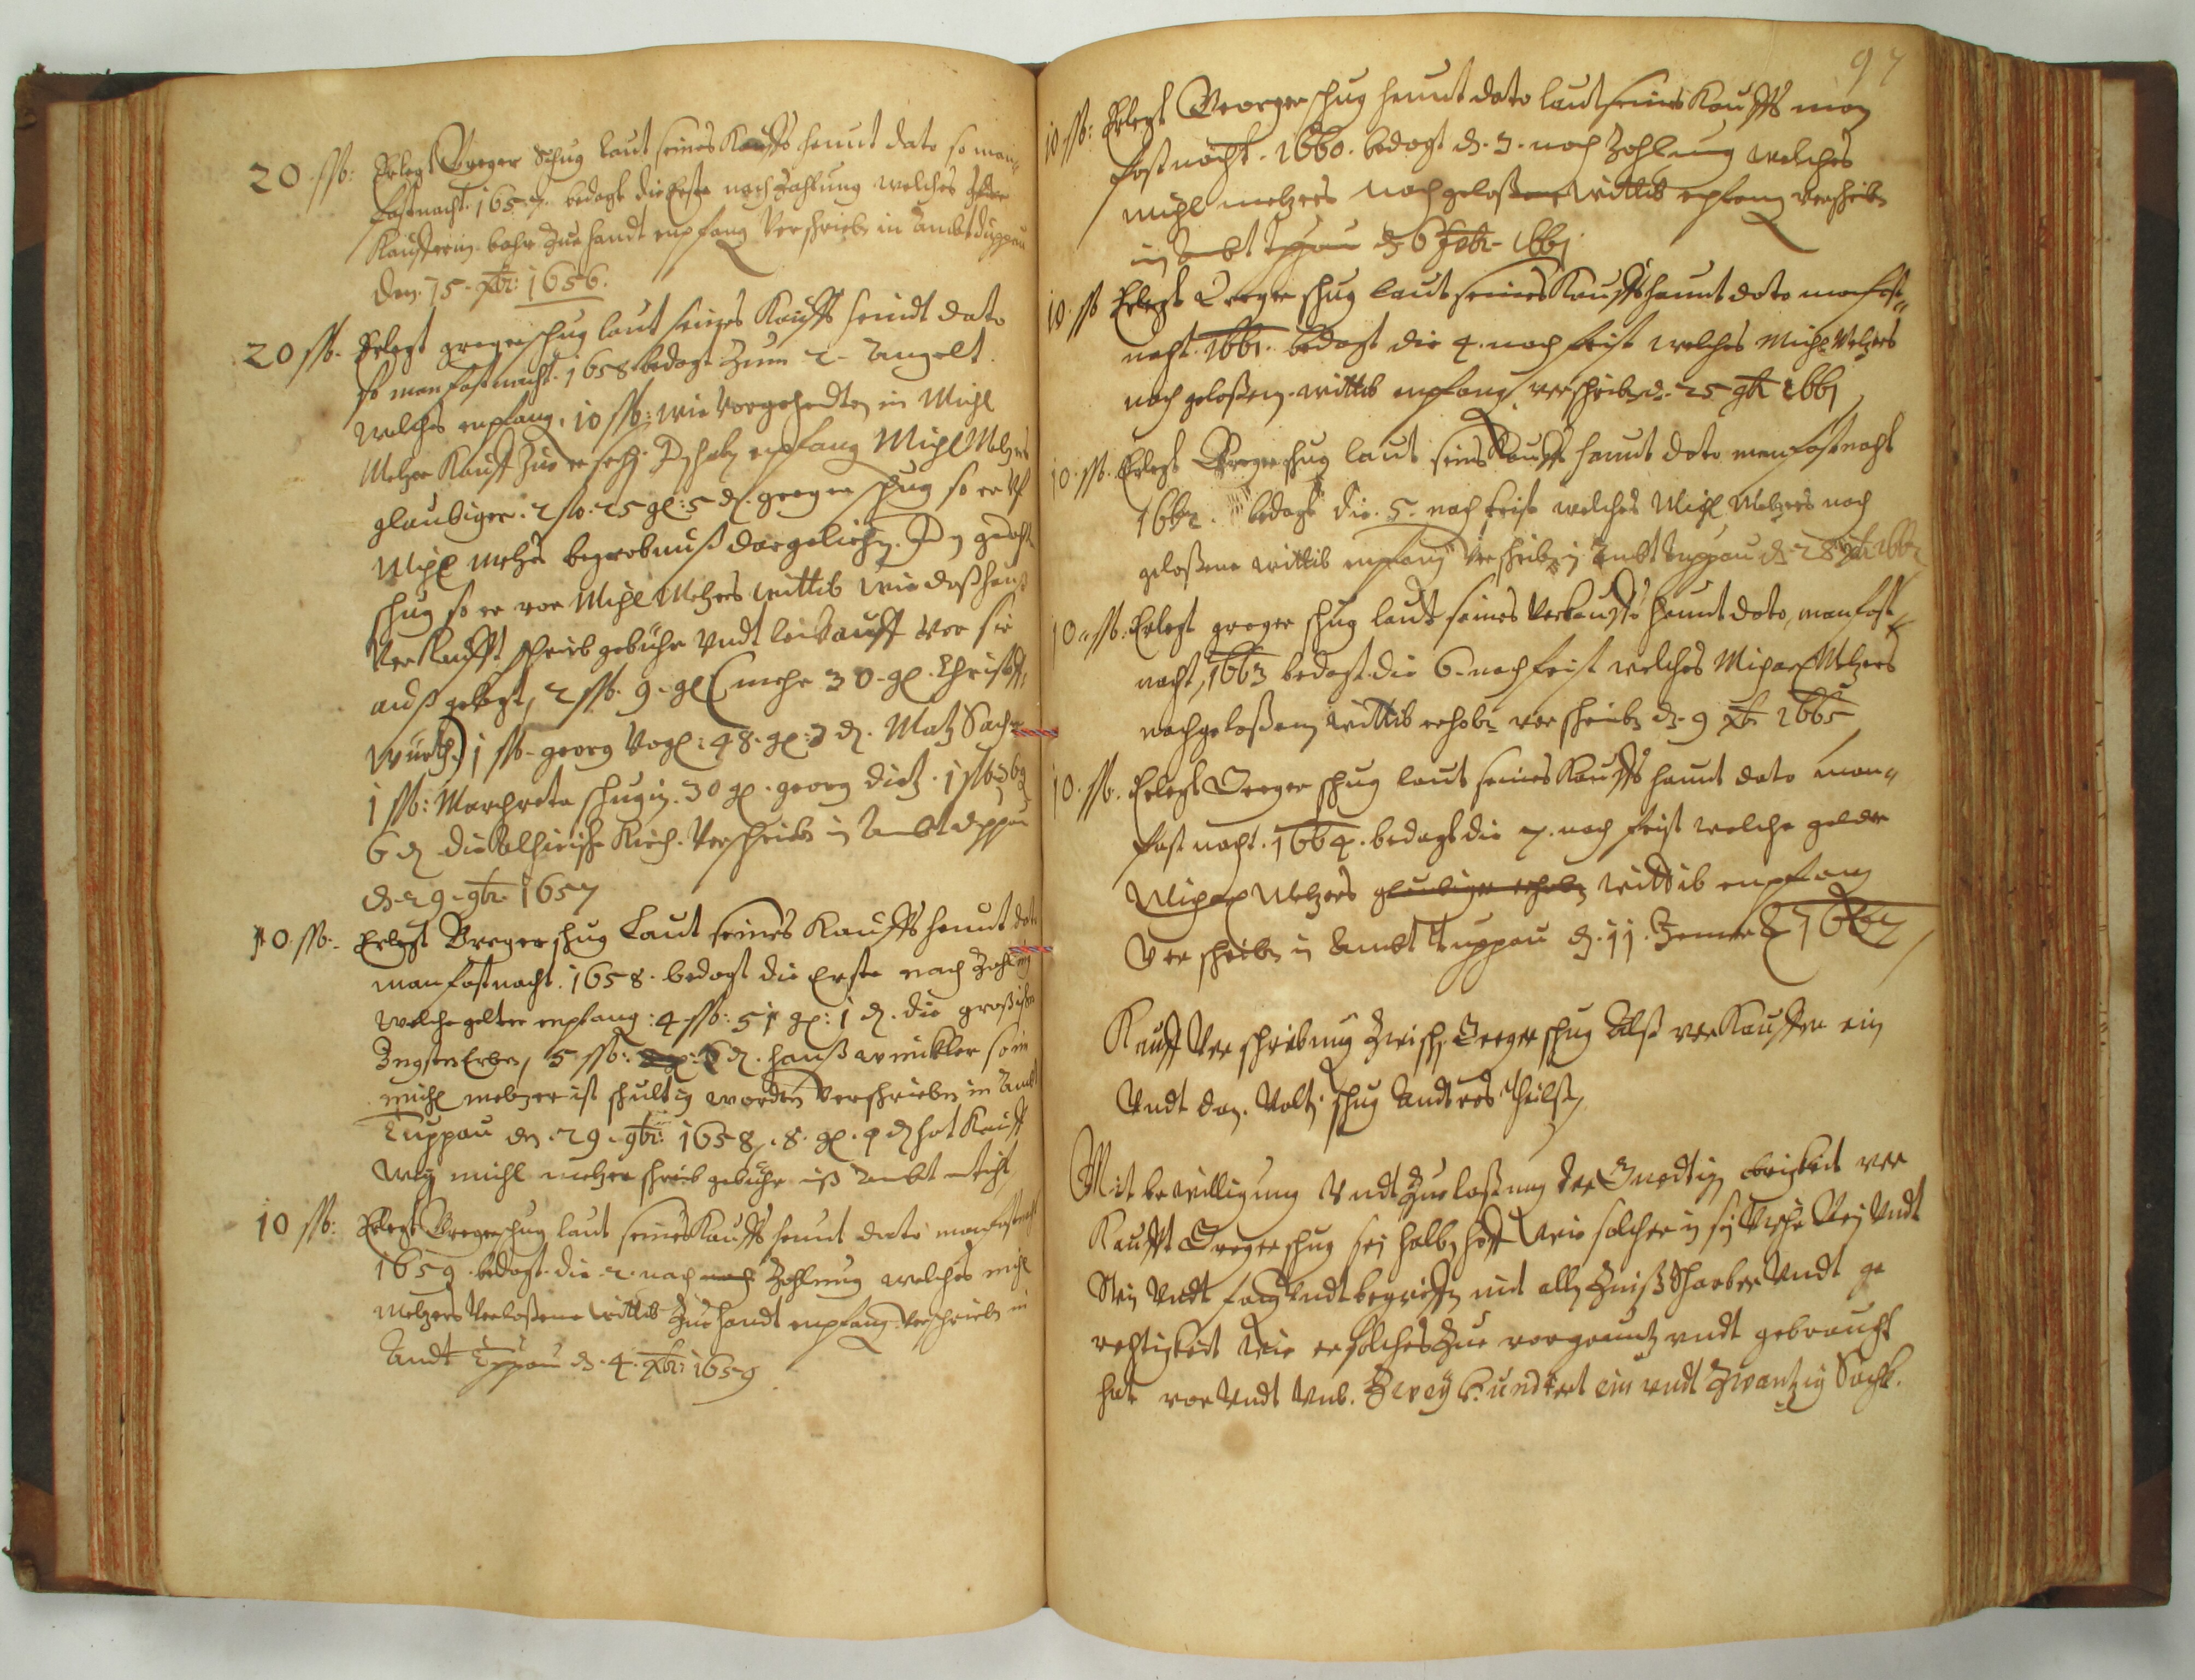 20 ßo: Erlegt Greger Schug laut seines Kauffs heunt dato so man
fastnacht 1657. bedagt die Erste nach Zahlung welches
Kaufferin bahr Zue handt empfang Verschrieb in Ambt Duppau
den. 15. xbr: 1656.
20 ßo. Erlegt greger schug laut seines Kauffs heindt dato
so man fastnacht. 1658 bedagt Zum 2. Angelt
welches empfang. 10 ßo: wie Vorgehedten in Michl
Melzer Kauff Zue empfang Michl Melzers
glaubiger. 2 ßo. 25 gl: 5 d. greger schug so er
Michl Melzers begrebnuß dargeliehen.
schug so er vor Michl Melzers wittib wie daß hauß
Verkaufft schreibgebühr Vndt leikauff Vor sie
auß gelegt, 2 ßo. 9. gl (mehr 30. gl. Christoff
Würth.) 1 ßo. georg Vogl: 48. gl: 3 d. Matz Sach
1 ßo: Marchreta schugin. 30 gl. georg dietz. 1 ßo
6 d die Kirch. Verschrieb in Ambt
d. 29. 9br. 1657
10 ßo. Erlegt Greger schug Laut seines Kauffs heunt dato
man fastnacht. 1658. bedagt die Erste nach Zahlung
welche gelter empfang: 4 ßo: 51 gl: 1 d. die
Erben, 5 ßo: hanß winckler so im
michl melzer ist schultig worden Verschrieben in Ambt
Tuppau den. 29. 9br: 1658. 8. gl. 9 d hat Kauff
weg michl melzer schreib gebühr inß Ambt
10 ßo: Erlegt Greger schug laut seines Kauffs heunt dato man fastnacht
1659. bedagt die 2. nach nach Zahlung welches michl
Melzers Verlaßene wittib Zue handt empfang Verschrieb in
Ambt Tuppau d. 4. xbr: 1659
97
10 ßo: Erlegt Georger schug heunt dato laut seines Kauffs man
fastnacht. 1660. bedagt d. 3. nach Zahlung welches
michl melzers nachgelaßene wittib epfang verschrieb
in Ambt Tuppau d. 6 Febr. 1661
10. ßo Erlegt Greger schug laut seines Kauffs heunt dato man fast
nacht. 1661. bedagt die 4. nach frist welches Michl Melzers
nach gelaßen wittib empfang verschrieb d. 25 9br 1661
10. ßo. Erlegt Greger schug laut seines Kauffs heunt dato man fastnacht
1662. bedagt die. 5. nach frist welches Michl Melzers nach
gelaßene wittib empfang Verschrieb in Ambt Tuppau d. 28 xbr 1662
10. ßo. Erlegt greger schug laut seines Verkauffs heunt dato, man fast
nacht, 1663 bedagt die 6. nach frist welches Michael Melzers
nachgelaßen wittib erhoben verschrieb d. 9 xbr 1665
10. ßo. Erlegt Greger schug laut seines Kauffs heunt dato man
fast nacht. 1664. bedagt die 7. nach frist welche gelder
Michael Melzers glaubiger erheben wittib empfang
Verschrieb in Ambt Tuppau d. 11. Jenner
Kauff Verschreibung Zwischen Greger schug Alß verkauffer ein
Vndt dan. Valtin schug Anders theilß
Mit bewilligung Vndt Zuelaßung der Gnedtigen obrigkeit ver
Kaufft Greger schug sein halben hoff wie solcher in sein
Rein Vndt begriffen mit allen Zinß Scharber Vndt ge
rechtigkeit wie er solches Zue vor genutz vndt gebraucht
hat vor Vndt Vmb. Zweÿ hundtert ein vndt Zwantzig Sechs.